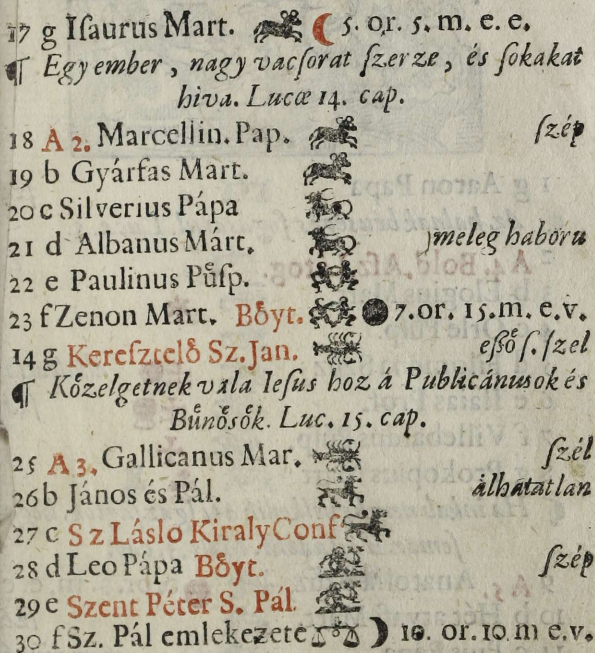 17 g Iſaurus Mart. 5. or. 5. m. e. e.
¶ Egy ember, nagy vacſorat ſzerze, és ſokakat
hiva. Lucæ 14. cap.
18 A 2. Marcellin. Pap. ſzép
19 b Gyárfas Mart.
20 c Silverius Pápa
21 d Albanus Márt. )meleg haboru
22 e Paulinus Půſp.
23 f Zenon Mart. Bőyt. 7. or. 15. m. e. v.
14 g Kereſztelő Sz. Jan. eſſő ſ. ſzel
¶ Kőzelgetnek vala Ieſus hoz á Publicánusok és
Bűnősők. Luc. 15. cap.
25 A 3. Gallicanus Mar. ſzél
26 b János és Pál. álhatatlan
27 c Sz Láslo Kiraly Conf
28 d Leo Pápa Bőyt. ſzép
29 e Szent Péter S. Pál.
30 f Sz. Pál emlekezete 10. or. 10. m e. v.